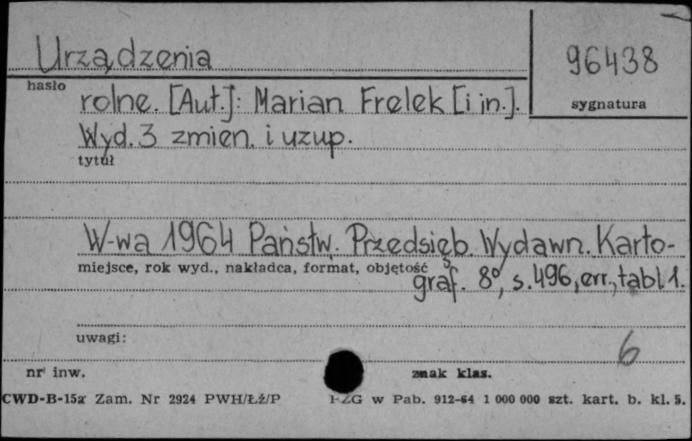 Urządzenia
96438
hasło
sygnatura
rolne. [Aut.]: Marian Frelek [i in.].
Wyd. 3 zmien. i uzup.
tytuł
W-wa 1964 Państw. Przedsięb. Wydawn. Karto-
miejsce, rok wyd., nakładca, format, objętość
graf. 8°, s. 496, err., tabl 1.
uwagi:
6
nr inw.
znak klas.
CWD-B-15a Zam. Nr 2924 PWH/Łź/P
PZG w Pab. 912-64 1 000 000 szt. kart. b. kl. 5.